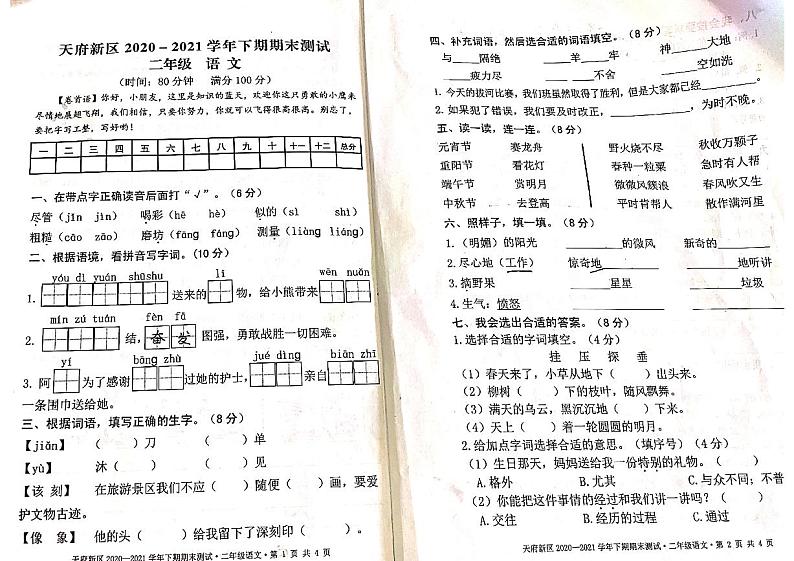 天府新区 2020－2021 学年下期期末测试
二年级 语 文
（时间：80 分钟 满分 100 分）
【卷首语】你好，小朋友，这里是知识的蓝天，欢迎你这只勇敢的小鹰来
尽情地展翅飞翔，我们相信，只要你努力，你就可以飞得很高很高。别忘了，
要把字写工整，写好哟！
一 二 三 四 五 六 七 八 九 十 十一 十二 总分
一、在带点字正确读音后面打“√”。（6 分）
尽管（jīn jìn） 喝彩（hē hè） 似的（sì shì）
粗糙（cāo zāo） 磨坊（fāng fáng） 测量（liàng liáng）
二、根据语境，看拼音写字词。（10 分）
yóu dì yuán shūshu lǐ wēn nuǎn
1. 送来的 物，给小熊带来 。
mín zú tuán fèn fā
2. 结，奋发 图强，勇敢战胜一切困难。
yí bāng zhù jué dìng biān zhī
3. 阿 为了感谢 过她的护士， 亲自
一条围巾送给她。
三、根据词语，填写正确的生字。（8 分）
【jiǎn】 （ ）刀 （ ）单
【yù】 沐（ ） （ ）见
【该 刻】 在旅游景区我们不应（ ）随便（ ）画，要爱
护文物古迹。
【像 象】 他的头（ ）给我留下了深刻印（ ）。
天府新区 2020—2021 学年下期期末测试·二年级语文·第 1 页 共 4 页
四、补充词语，然后选合适的词语填空。（8 分）
与____隔绝 羊____牢 神____大地
____疲力尽 ____不舍 ____空如洗
1. 今天的拔河比赛，我们班虽然取得了胜利，但是大家都已经________。
2. 如果犯了错误，我们要及时改正，________，为时不晚。
五、读一读，连一连。（8 分）
元宵节 赛龙舟 野火烧不尽 秋收万颗子
重阳节 看花灯 春种一粒粟 急时有人帮
端午节 赏明月 微微风簇浪 春风吹又生
中秋节 去登高 平时肯帮人 散作满河星
六、照样子，填一填。（8 分）
1.（明媚）的阳光 ________的微风 新奇的________
2. 尽心地（工作） 惊奇地________ ________地听讲
3. 摘野果 ________星星 ________垃圾
4. 生气：愤怒 ________ ________
七、我会选出合适的答案。（8 分）
1. 选择合适的字词填空。（4 分）
挂 压 探 垂
（1）春天来了，小草从地下（ ）出头来。
（2）柳树（ ）下的枝叶，随风飘舞。
（3）满天的乌云，黑沉沉地（ ）下来。
（4）天上（ ）着一轮圆圆的明月。
2. 给加点字词选择合适的意思。（填序号）（4 分）
（1）生日那天，妈妈送给我一份特别的礼物。（ ）
A.格外 B.尤其 C.与众不同；不普
（2）你能把这件事情的经过和我们讲一讲吗？（ ）
A.交往 B.经历的过程 C.通过
天府新区 2020—2021 学年下期期末测试·二年级语文·第 2 页 共 4 页